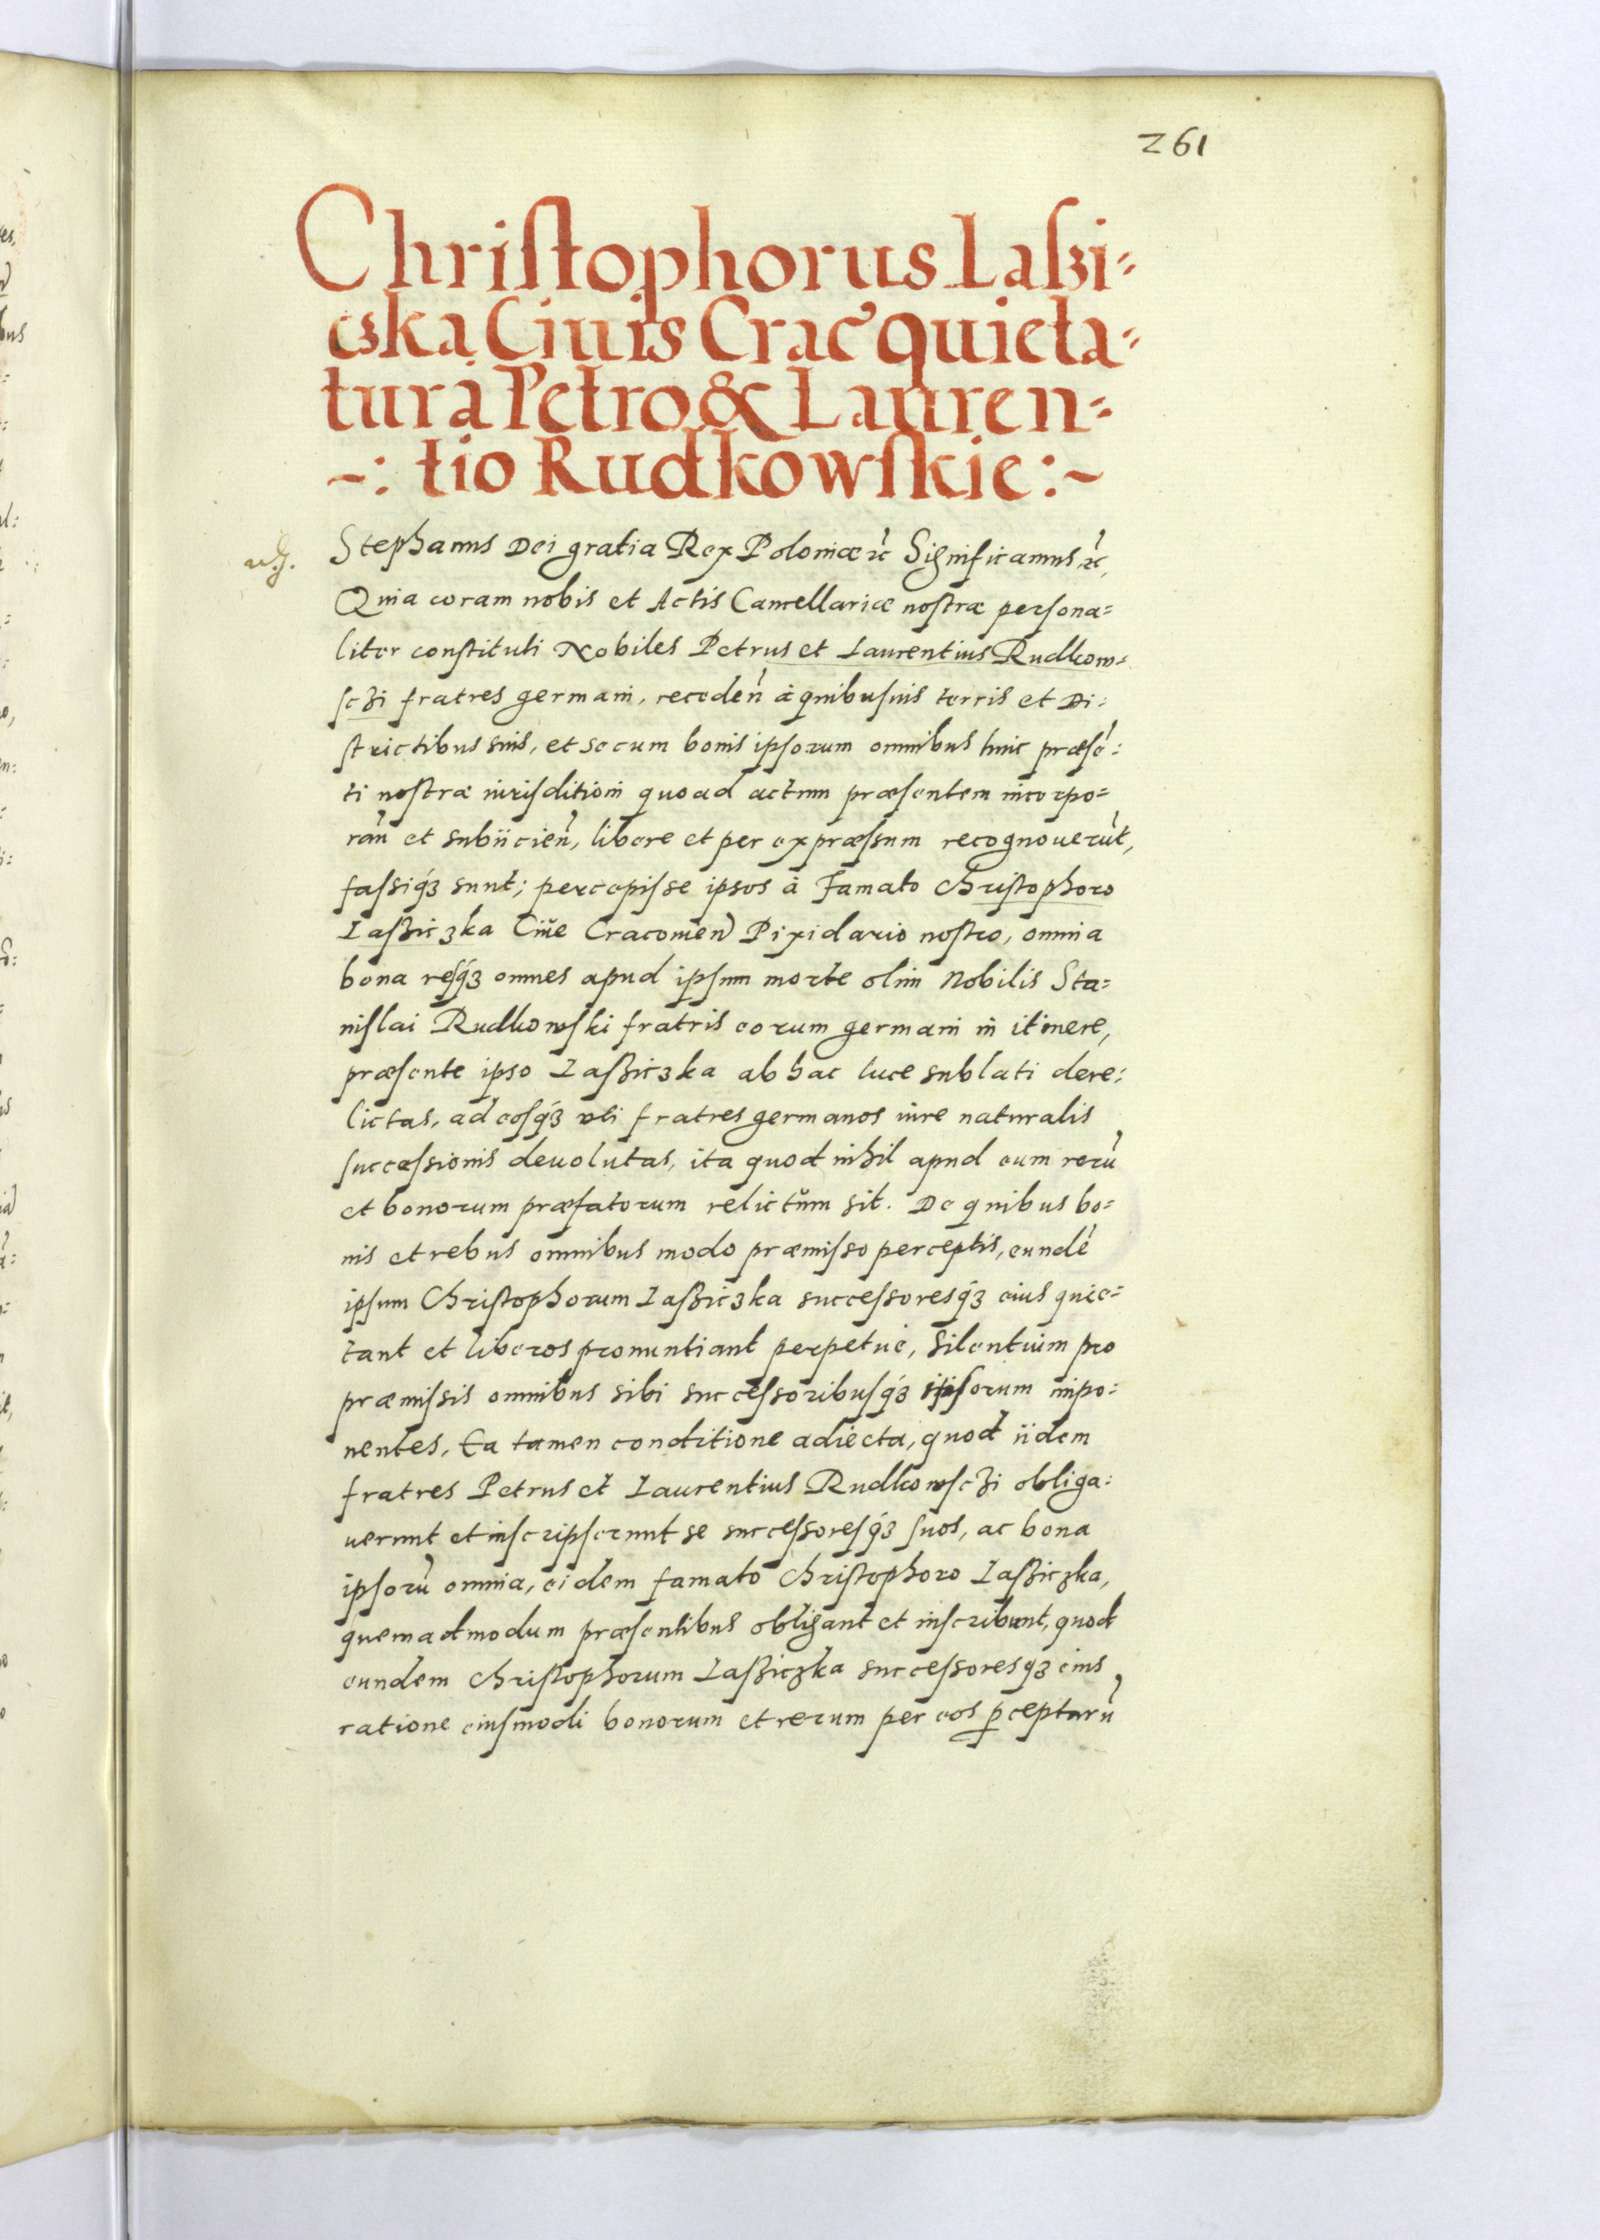 261
Christophorus Laßi-
czka Ciuis Crac quieta-
tur à Petro & Lauren-
-: tio Rudkowskie :~
Stephanus Dei gratia Rex Poloniæ etc̃ Significamus etc̃,
Quia coram nobis et Actis Cancellariæ nostræ persona=
liter constituti Nobiles Petrus et Laurentius Rudkow=
sczi fratres germani, receden̄ à quibusuis terris et Di:
strictibus suis, et se cum bonis ipsorum omnibus huic præsē:
ti nostræ iurisditioni quoad actum præsentem incorpo=
ran̄ et subiicien̄, libere et per expræssum recognouerūt,
fassiq́ꝫ sunt; percepisse ipsos à Famato Christophoro
Laßiczka Ciue Cracouien̄ Pixidario nostro, omnia
bona resq́ꝫ omnes apud ipsum morte olim Nobilis Sta=
nislai Rudkowski fratris eorum germani in itinere,
præsente ipso Laßiczka ab hac luce sublati dere:
lictas, ad eosq́ꝫ uti fratres germanos iure naturalis
successionis deuolutas, ita quod nihil apud eum rerū
et bonorum præfatorum relictŭm sit. De quibus bo=
nis et rebus omnibus modo præmisso perceptis, eundē
ipsum Christophorum Laßiczka successoresq́ꝫ eius quie=
tant et liberos pronuntiant perpetuè, Silentium pro
præmissis omnibus sibi successoribusq́ꝫ ipsorum impo:
nentes. Ea tamen conditione adiecta, quod iidem
fratres Petrus et Laurentius Rudkowsczi obliga:
uerunt et inscripserunt se successoresq́ꝫ suos, ac bona
ipsorū omnia, eidem famato Christophoro Laßiczka,
quemadmodum præsentibus obligant et inscribunt, quod
eundem Christophorum Laßiczka successoresqꝫ eius
ratione eiusmodi bonorum et rerum per eos ꝑceptarū